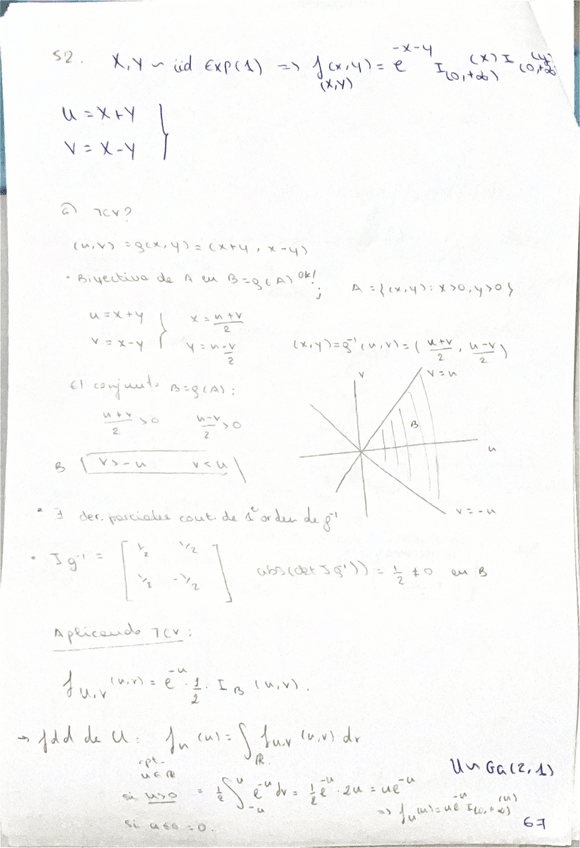 52. X, Y ~ iid Exp(1) => f(x,y) = e^{-x-y} I_{(0,+∞)}(x) I_{(0,+∞)}(y)
(X,Y)
U = X+Y
V = X-Y
a) TCV?
(u,v) = g(x,y) = (x+y, x-y)
• Biyectiva de A en B=g(A) ok! ; A = {(x,y): x>0, y>0}
u = x+y x = \frac{u+v}{2}
v = x-y y = \frac{u-v}{2} (x,y) = g^{-1}(u,v) = (\frac{u+v}{2}, \frac{u-v}{2})
El conjunto B=g(A):
\frac{u+v}{2} > 0 \frac{u-v}{2} > 0
B v > -u v < u
v
v = u
B
u
v = -u
• ∃ der. parciales cont. de 1º orden de g^{-1}
• Jg^{-1} = [1/2 1/2
1/2 -1/2] abs(det Jg^{-1})) = \frac{1}{2} ≠ 0 en B
Aplicando TCV:
f_{U,V}(u,v) = e^{-u} · \frac{1}{2} · I_B(u,v).
→ fdd de U: f_u(u) = ∫_ℝ f_{U,V}(u,v) dv
u ∈ ℝ
si u>0 = \frac{1}{2} ∫_{-u}^{u} e^{-u} dv = \frac{1}{2} e^{-u} · 2u = u e^{-u}
U ~ Ga(2,1)
=> f_u(u) = u e^{-u} I_{(0,+∞)}(u)
si u≤0 = 0.
67